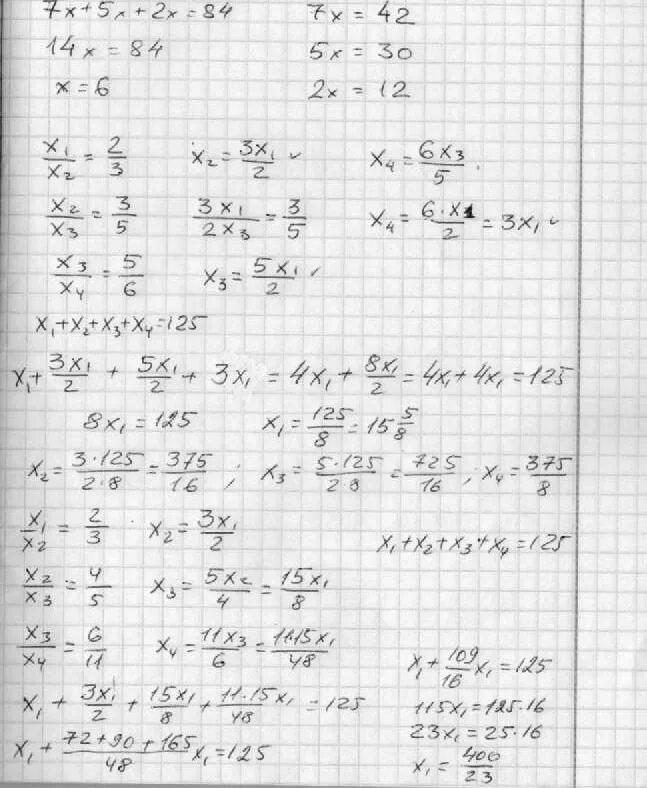 7x+5x+2x=84 7x=42
14x=84 5x=30
x=6 2x=12
x₁/x₂=2/3 x₂=3x₁/2 x₄=6x₃/5
x₂/x₃=3/5 3x₁/2x₃=3/5 x₄=6·x1/2=3x₁
x₃/x₄=5/6 x₃=5x₁/2
x₁+x₂+x₃+x₄=125
x₁+3x₁/2+5x₁/2+3x₁=4x₁+8x₁/2=4x₁+4x₁=125
8x₁=125 x₁=125/8=15 5/8
x₂=3·125/2·8=375/16; x₃=5·125/2·8=725/16; x₄=375/8
x₁/x₂=2/3 x₂=3x₁/2 x₁+x₂+x₃+x₄=125
x₂/x₃=4/5 x₃=5x₂/4=15x₁/8
x₃/x₄=6/11 x₄=11x₃/6=11·15x₁/48
x₁+109/16x₁=125
x₁+3x₁/2+15x₁/8+11·15x₁/48=125
115x₁=125·16
23x₁=25·16
x₁+72+90+165/48x₁=125
x₁=400/23